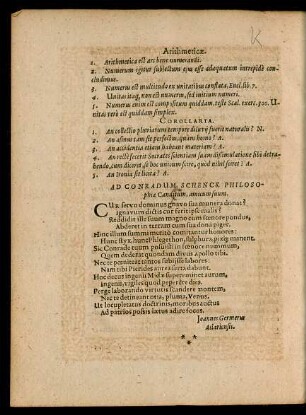 K
Arithmeticæ.
1. Arithmetica est ars bene numerandi.
2. Numerum igitur subjectum ejus esse adæquatum intrepidè con-
cludimus.
3. Numerus est multitudo ex unitatibus constata, Eucl. lib. 7.
4. Unitas itaq; non est numerus, sed initium numeri.
5. Numerus enim est compositum quiddam. teste Scal. exerc. 301. U-
nitas verò est quiddam simplex.
COROLLARIA.
1. An collectio plurium temporis dici possit natura naturalis? N.
2. An asinus tam sit perfectus, quam homo? A.
3. An accidentia etiam habeant materiam? A.
4. An rectè fecerit Socrates scientiam suam dissimulatione sibi detra-
hendo, cum diceret, se hoc unicum scire, quòd nihil sciret? A.
5. An Ironia sit licita? A.
AD CONRADUM SCHENCK PHILOSO-
phiæ Candidum, amicum suum.
CUr, servo dominus ignavo sua munera donat?
Ignavum dictis cur ferit ipse malis?
Reddidit ille suum magno cum fœnore pondus,
Abderet in terram cum sua dona piger.
Hunc illum summi meritò comitantur honores:
Hunc styx, hunc Phlegethon, sulphura, pixq; manent.
Sic Conrade tuum posuisti in fœnore nummum,
Quem dederat quondam divis Apollo tibi.
Nec te pœniteat tantos subiisse labores:
Nam tibi Pierides aurea serta dabunt.
Hec tua Mecœnas dictis supereminet aurum,
Ingenio, vigiles quid peperere dies.
Perge laborando virtutis scandere montem,
Nec te detineant otia, pluma, Venus.
Ut locupletatus doctrinis, moribus auctus
Ad patrios possis lætus adire focos.
Joannes Germerus
Adariensis.